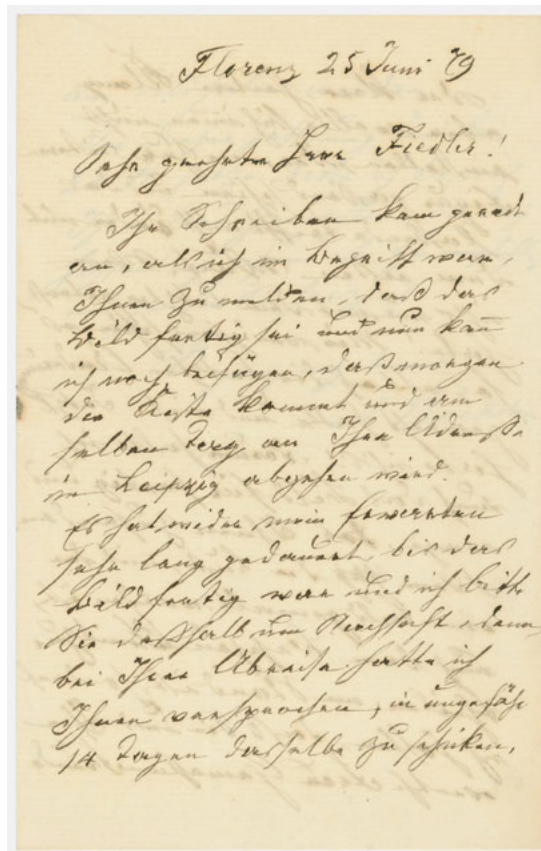 Florenz 25 Juni 79
Sehr geehrter Herr Fiedler!
Ihr Schreiben kam gerade
an, als ich im Begriff war,
Ihnen zu melden, daß das
Bild fertig sei und nun kañ
ich noch beifügen, daß morgen
die Kiste kommt und am
selben Tag an Ihre Adresse
in Leipzig abgehen wird.
Es hat wider mein Erwarten
sehr lang gedauert bis das
Bild fertig war und ich bitte
Sie deßhalb um Nachsicht, denn
bei Ihrer Abreise hatte ich
Ihnen versprochen, in ungefähr
14 Tagen dasselbe zu schicken,